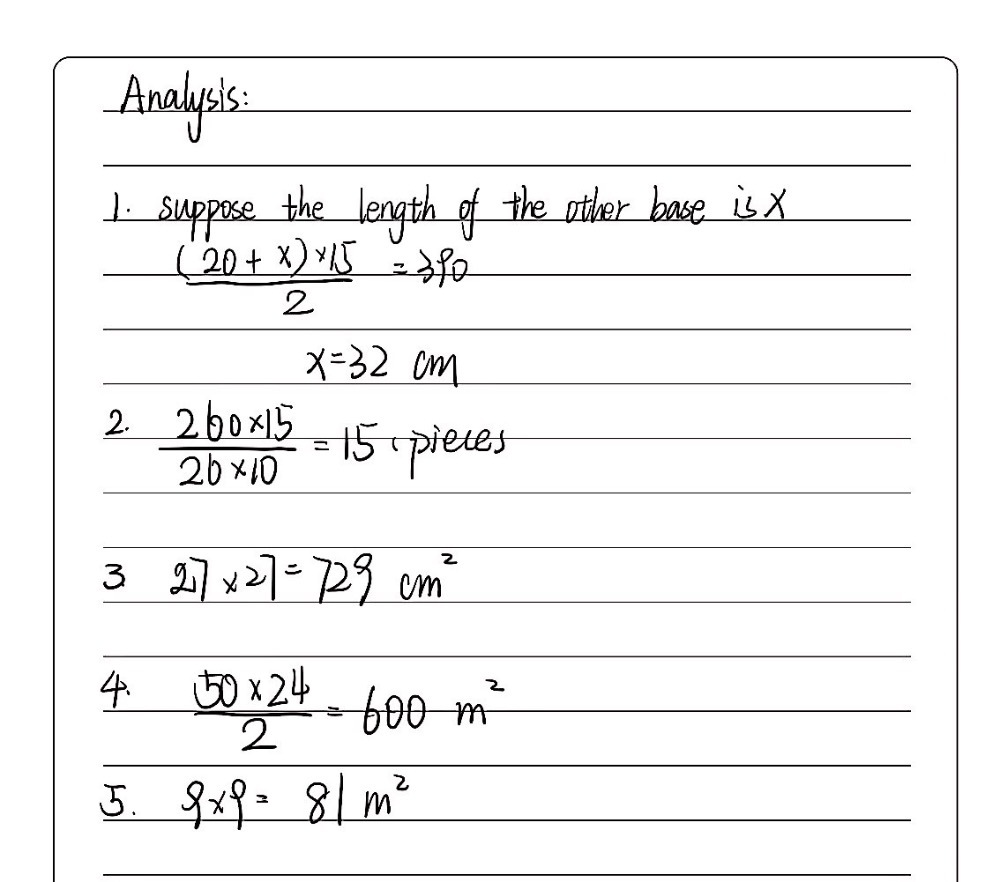 Analysis:
1. suppose the length of the other base is x
(20 + x) × 15
= 390
2
x = 32 cm
2. 260 × 15
= 15 pieces
26 × 10
3 27 × 27 = 729 cm²
4. 50 × 24
= 600 m²
2
5. 9 × 9 = 81 m²